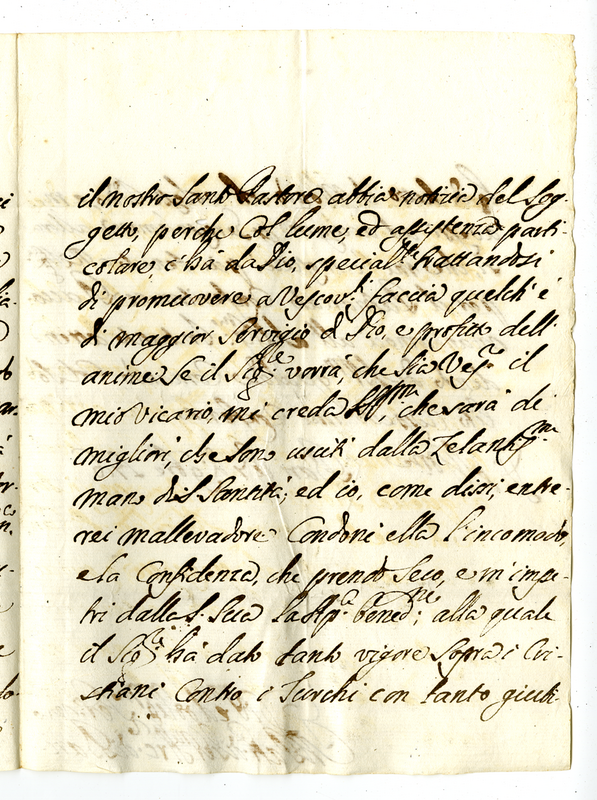 il nostro Santo Pastore abbia notizia del Sog-
getto, perche Col lume, ed assistenza parti-
colare, c'hà da Dio, special.te trattandosi
di promuovere a Vescov.i, faccia quelch'è
di maggior Servigio d Dio, e profitto dell'
anime. Se il Sig.re vorrà, che sia Ves.vo il
mio Vicario, mi creda che sarà di
migliori, che sono usciti dalla Zelantis.ma
mano di S. Santità; ed io, come dissi, entre-
rei mallevadore. Condoni ella l'incomodo,
e la Confidenza, che prendo Seco, e m'impe-
tri dalla S. Sua la Ap.ca bened.ne; alla quale
il Sig.re hà dato tanto vigore sopra i Cri-
stiani Contro i Turchi con tanto giuti-